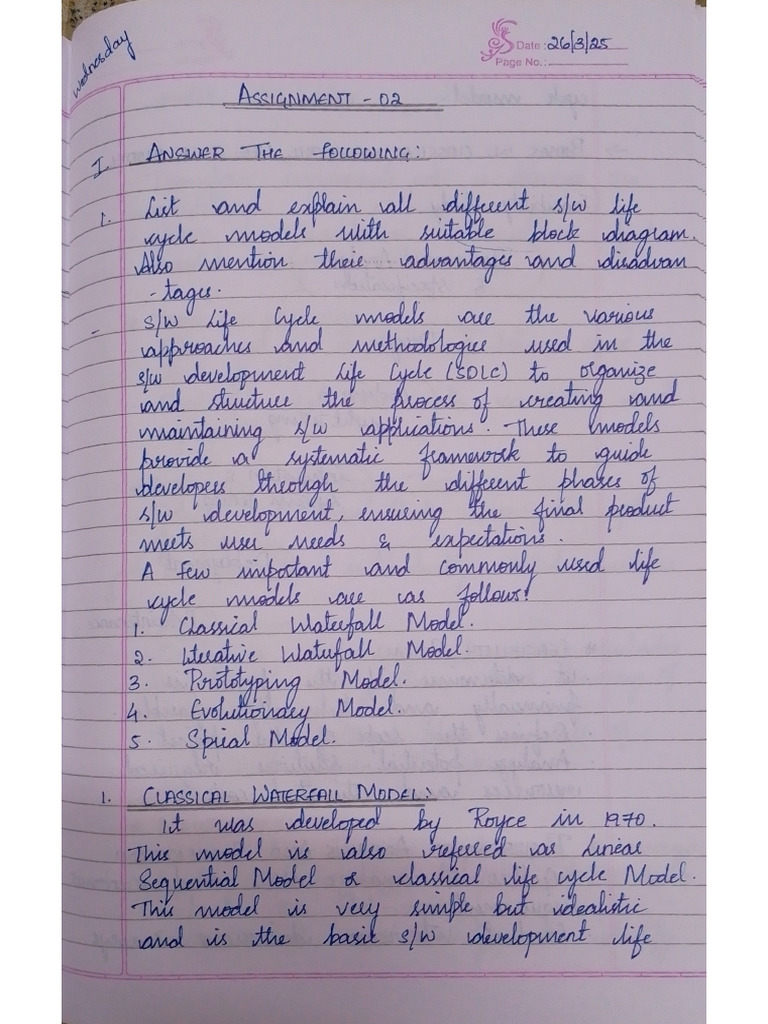 Wednesday
Date: 26/3/25
Page No.:
ASSIGNMENT - 02
I. ANSWER THE FOLLOWING:
1. List and explain all different s/w life
cycle models with suitable block diagram.
Also mention their advantages and disadvan
-tages.
- S/W Life Cycle models are the various
approaches and methodologies used in the
s/w development Life Cycle (SDLC) to organize
and structure the process of creating and
maintaining s/w applications. These models
provide a systematic framework to guide
developers through the different phases of
s/w development, ensuring the final product
meets user needs & expectations.
A few important and commonly used life
cycle models are as follows:
1. Classical Waterfall Model.
2. Iterative Waterfall Model.
3. Prototyping Model.
4. Evolutionary Model.
5. Spiral Model.
1. CLASSICAL WATERFALL MODEL:
It was developed by Royce in 1970.
This model is also referred as Linear
Sequential Model or classical life cycle Model.
This model is very simple but idealistic
and is the basic s/w development life